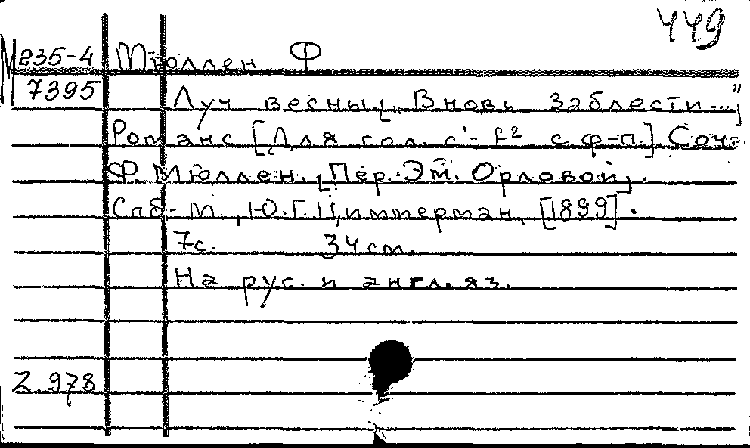 449
М235-4 Мюллен Ф
7395
Луч весны. „Вновь заблести..."
Романс [Для гол. c'-f² с ф-п.] Соч.
Ф. Мюллен. [Пер. Эм. Орловой].
Спб.-М., Ю.Г. Циммерман, [1899].
7с. 34 см.
На рус. и англ. яз.
Z.978